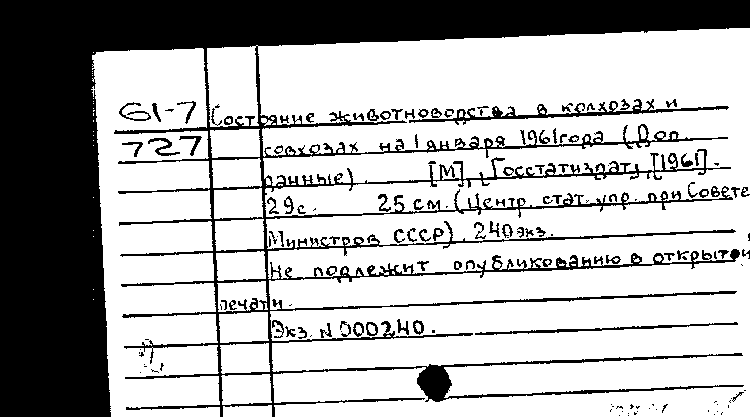 61-7 Состояние животноводства в колхозах и
727 совхозах на 1 января 1961 года (Доп.
данные). [М], [Госстатиздат], [1961].
29с. 25 см. (Центр. стат. упр. при Совете
Министров СССР). 240 экз.
Не подлежит опубликованию в открытой
печати.
Экз. N 000240.
2